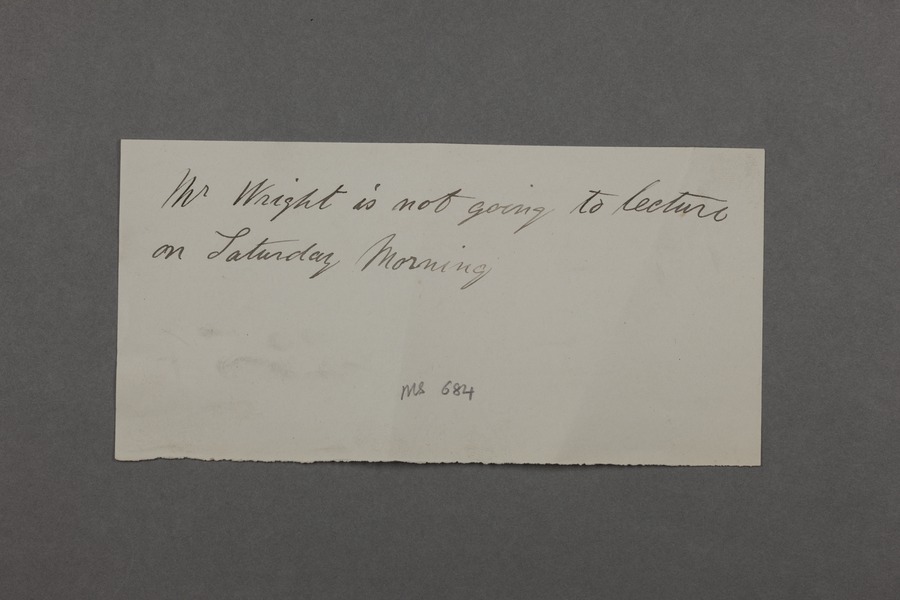 Mr Wright is not going to lecture
on Saturday Morning
MS 684